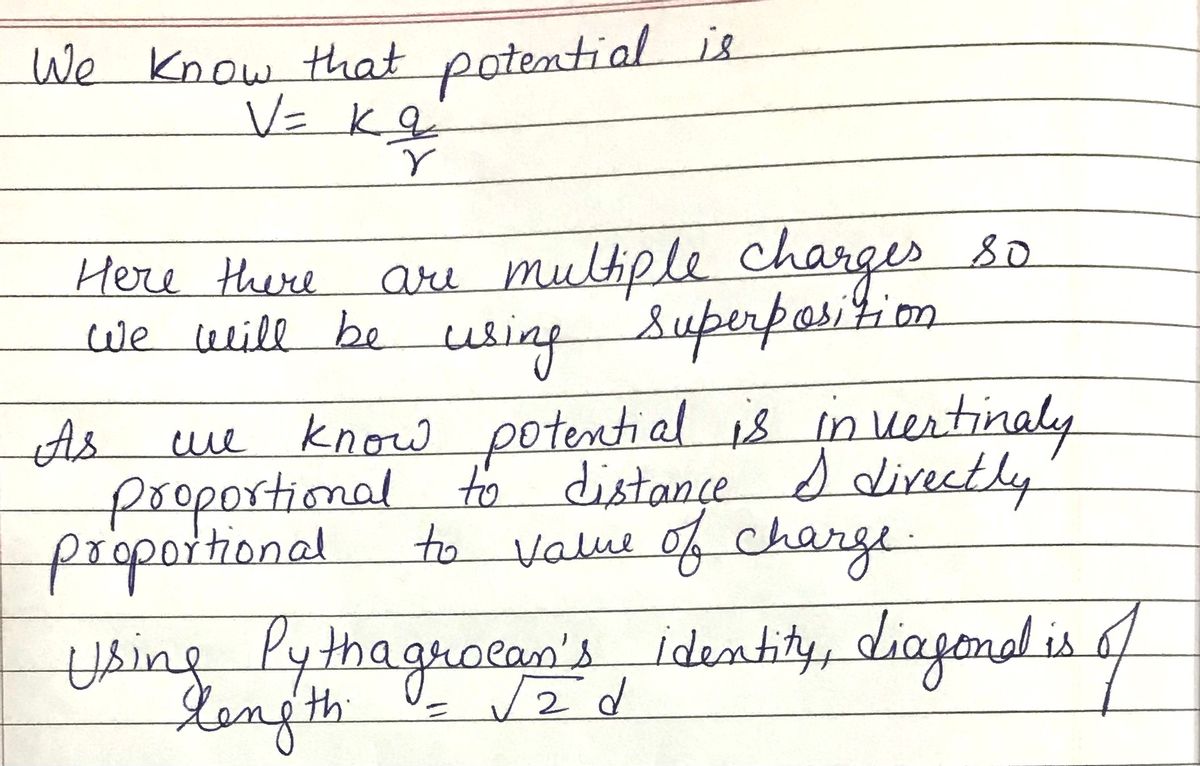 We know that potential is
V= k q/r
Here there are multiple charges so
we will be using superposition
As we know potential is invertinaly
proportional to distance & directly
proportional to value of charge.
Using Pythagroean's identity, diagonal is of
length = √2 d